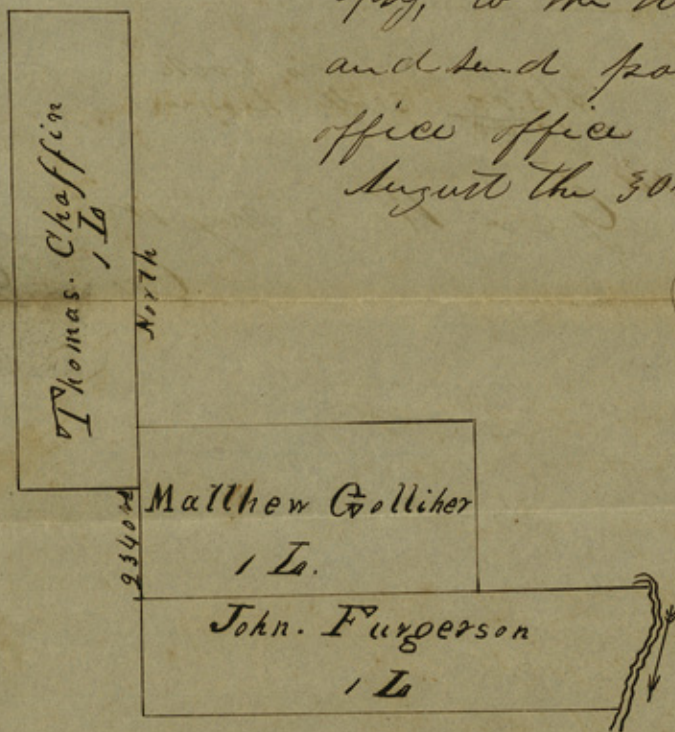 to the
and send
office office
August the 30
Thomas. Chaffin
1 L
North
2340 vs
Matthew Golliher
1 L.
John. Furgerson
1 L